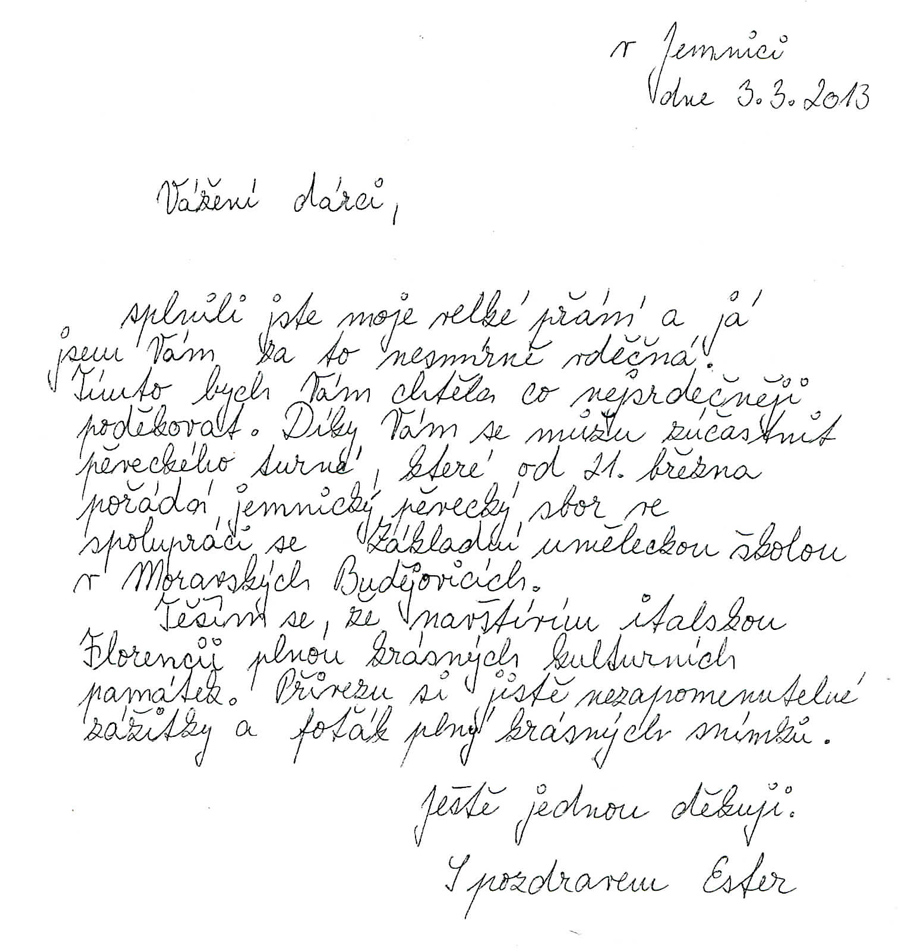 v Jemnici
dne 3.3.2013
Vážení dárci,
splnili jste moje velké přání a já
jsem Vám za to nesmírně vděčná.
Tímto bych Vám chtěla co nejsrdečněji
poděkovat. Díky Vám se můžu zúčastnit
pěveckého turné, které od 21. března
pořádá jemnický pěvecký sbor ve
spolupráci se Základní uměleckou školou
v Moravských Budějovicích.
Těším se, že navštívím italskou
Florencii plnou krásných kulturních
památek. Přivezu si jistě nezapomenutelné
zážitky a foťák plný krásných snímků.
Ještě jednou děkuji.
S pozdravem Ester